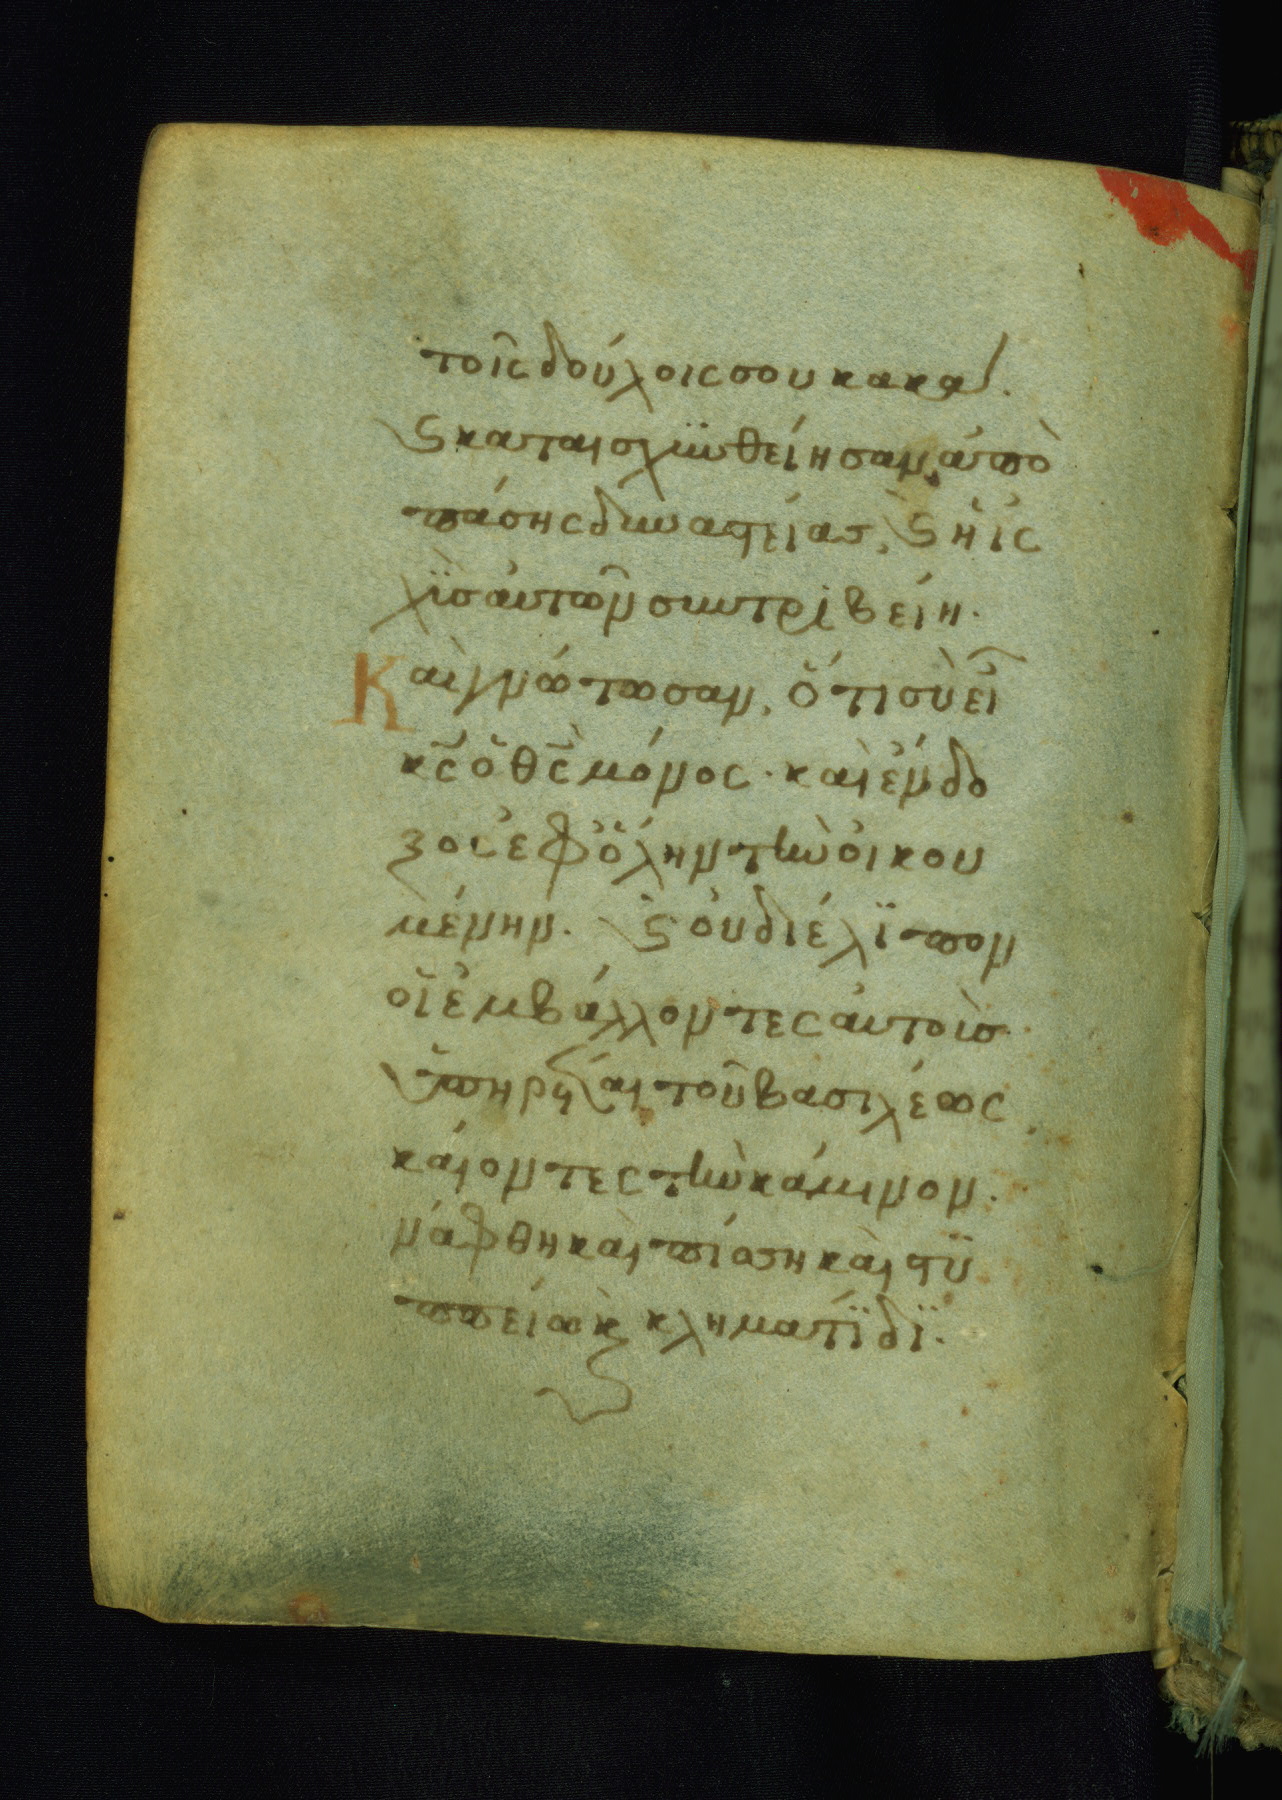 τοῖς δούλοις σου κακά.
ϗ καταισχϋνθείησαν ἀπὸ
πάσης δυναστείας, ϗ ἡ ἰς
χῒς ἀυτῶν συντριβείη.
Καὶ γνώτωσαν, ὅτι σὺ εἶ
κ̅ς ὁ θ̅ς μόνος· καὶ ἔνδο
ξος ἐφ ὅλην τὴν ὀικου
μένην. ϗ ὀυ διέλϊπον
οἱ ἐμβάλλοντες ἀυτοὺς
ὑπηρέται τοῦ βασιλέως
κάιοντες τὴν κάμινον.
νάφθη καὶ πίσση καὶ στϋ
πείω ϗ κληματΐδϊ.